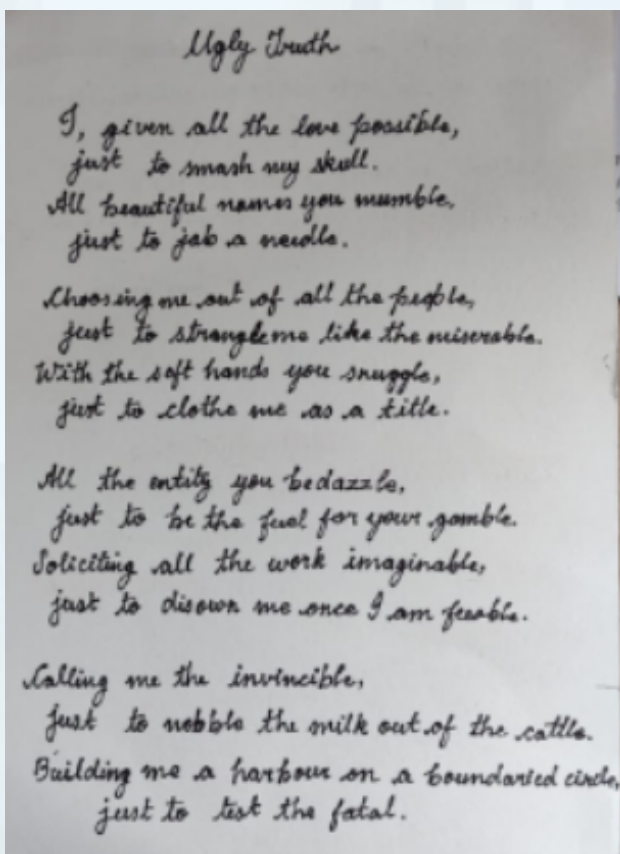 Ugly Truth
I, given all the love possible,
just to smash my skull.
All beautiful names you mumble,
just to jab a needle.
Choosing me out of all the people,
just to strangle me like the miserable.
With the soft hands you snuggle,
just to clothe me as a title.
All the entity you bedazzle,
just to be the fuel for your gamble.
Soliciting all the work imaginable,
just to disown me once I am feeble.
Calling me the invincible,
just to nobble the milk out of the cattle.
Building me a harbour on a boundaried circle,
just to test the fatal.